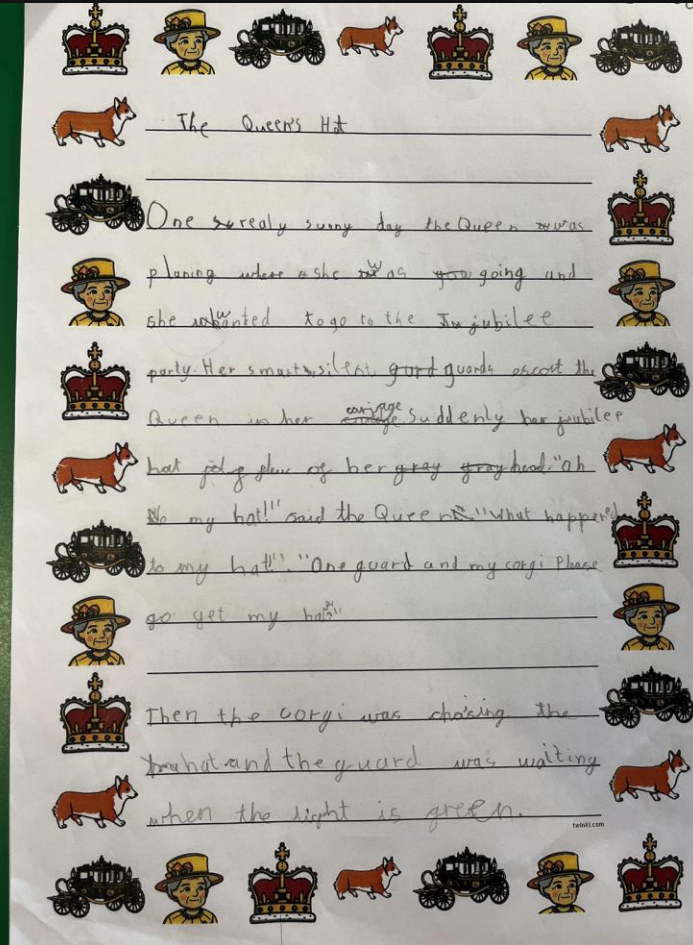 The Queen's Hat
One realy sunny day the Queen was
planing where she was going and
she wanted to go to the jubilee
party. Her smart, silent gurd guards escort the
Queen in her carriage Suddenly her jubilee
hat flew of her gray gray head. "Oh
No my hat!" said the Queen. "What happened
to my hat!". "One guard and my corgi Please
go get my hat"
Then the corgi was chasing the
hat and the guard was waiting
when the light is green.
twinkl.com